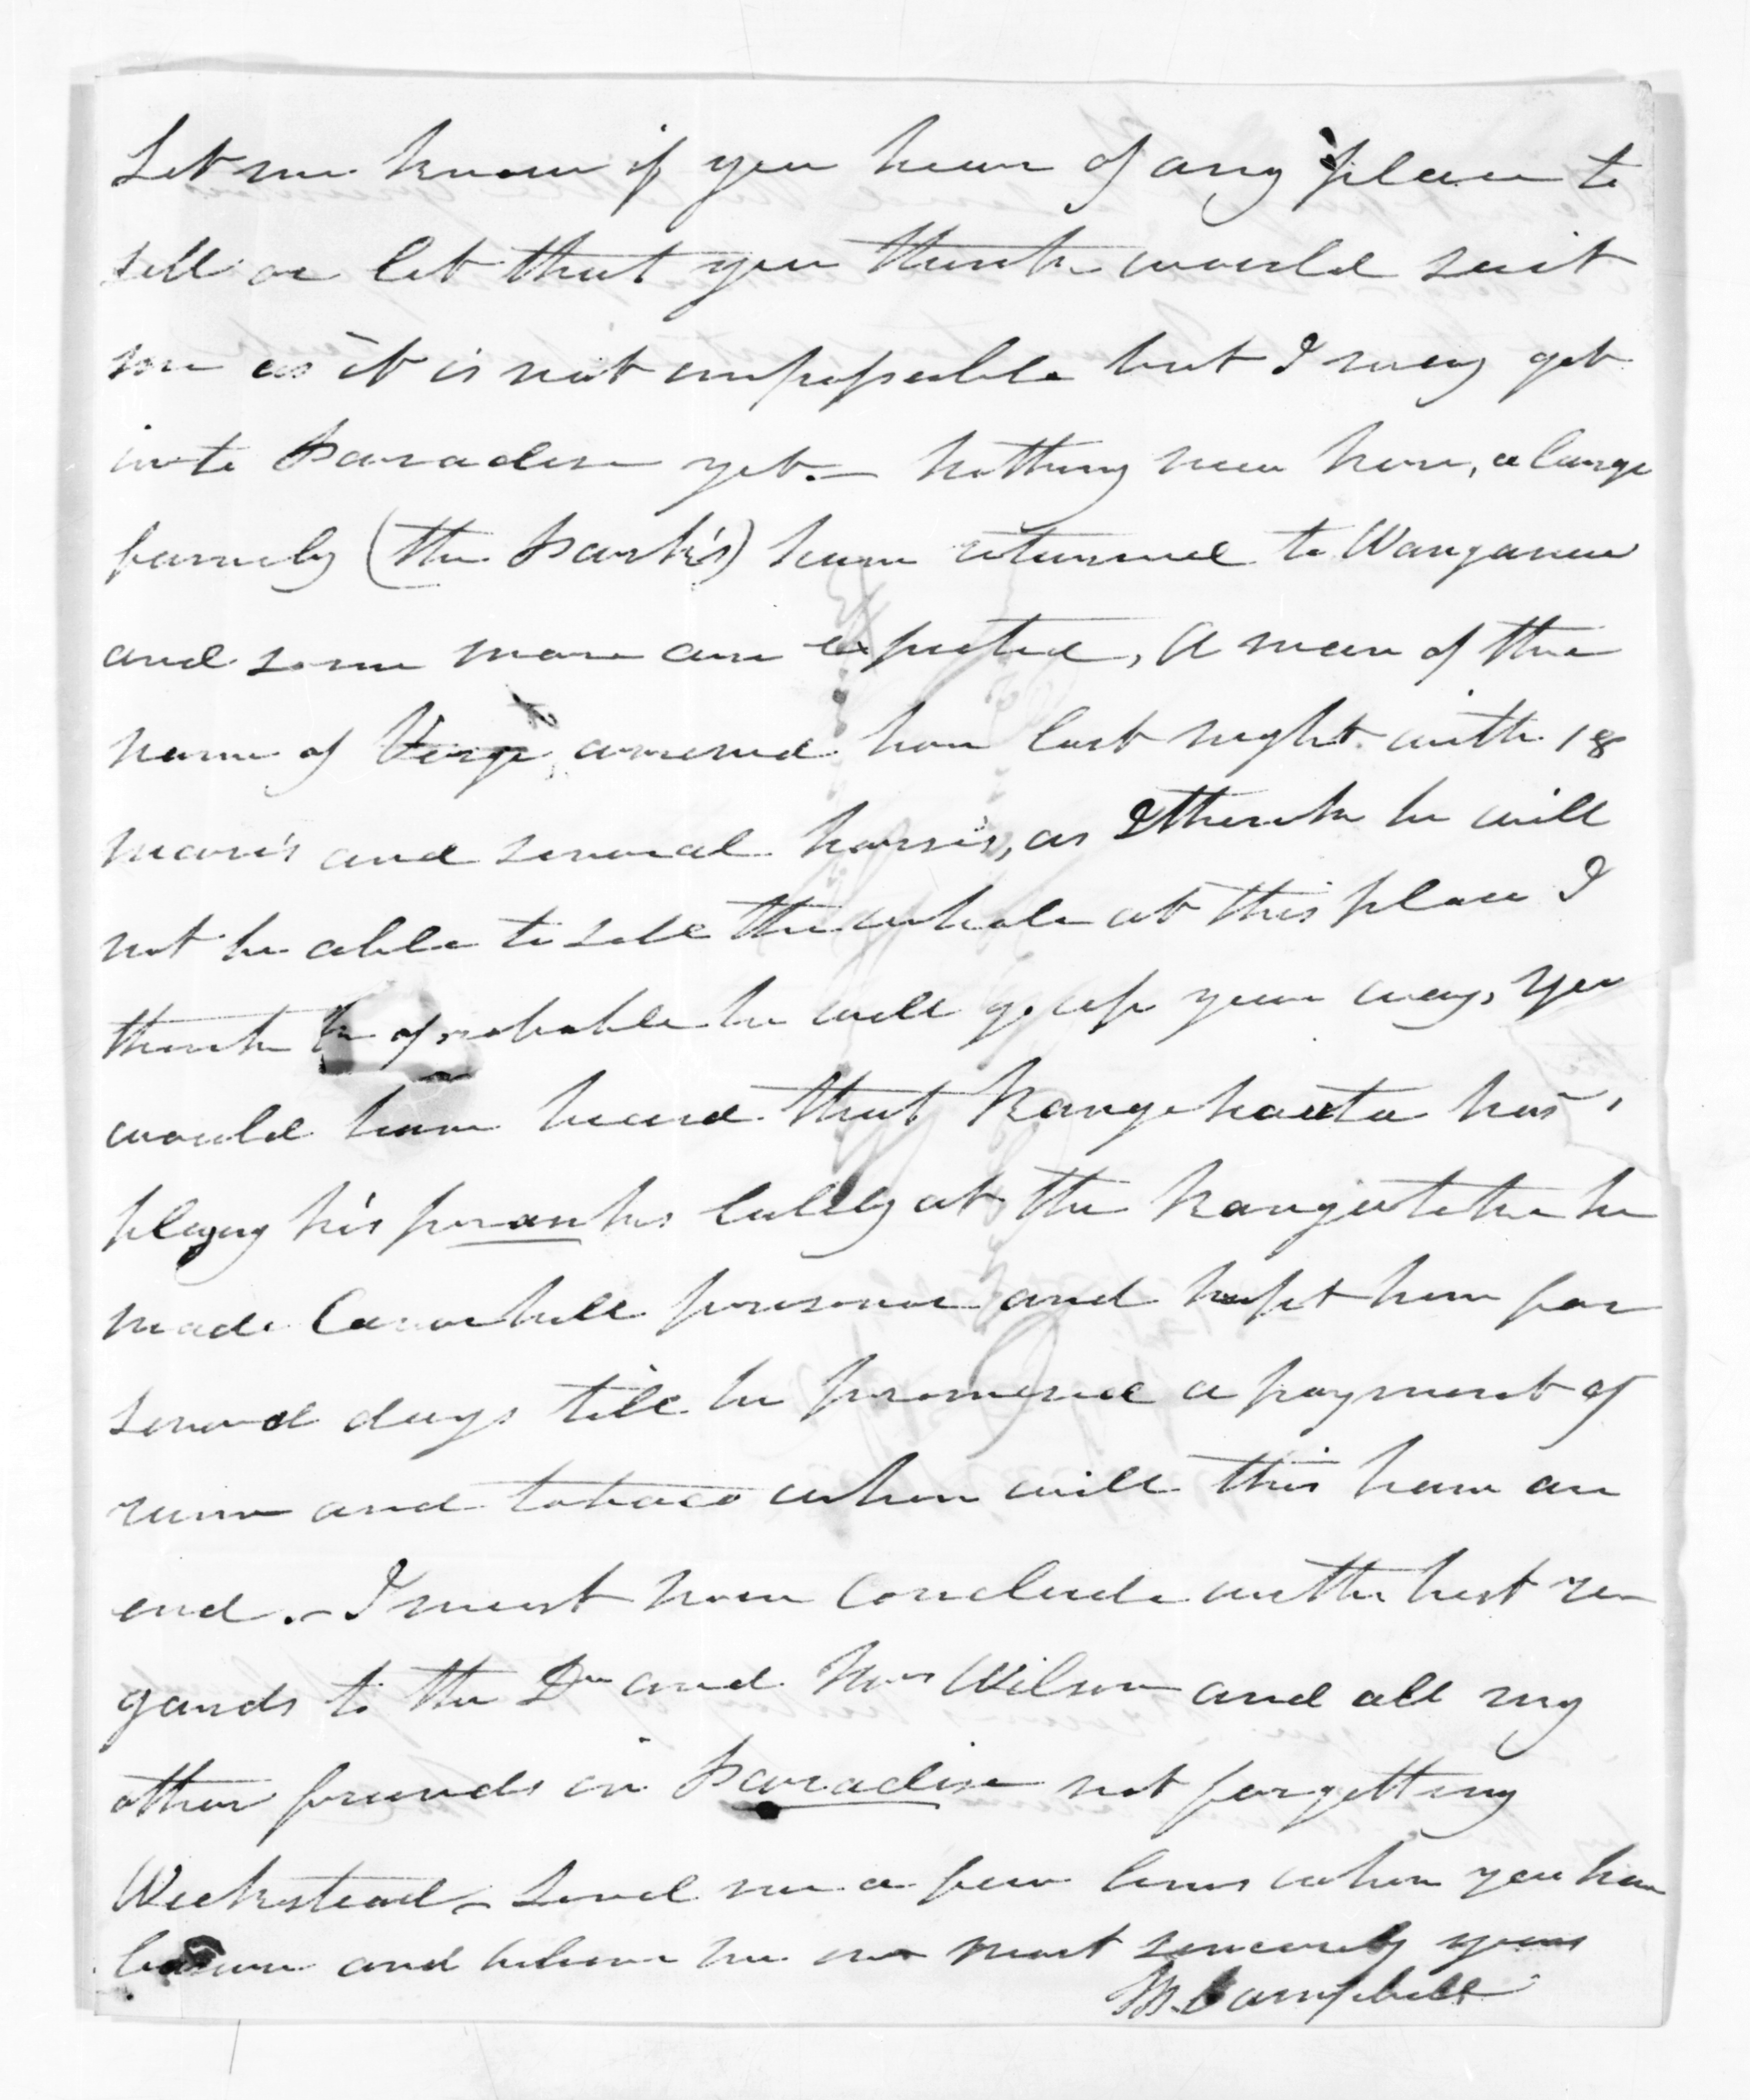 Let me know if you hear of any place to
sell or let that you think would suit
me as it is not impossible but I may get
into Paradise yet. — Nothing new here, a large
family (the Park's) have returned to Wanganui
and some more are expected, A man of the
name of Verge, arrived here last night with 18
mare's and several horses, as I think he will
not be able to sell the whole at this place I
think probable he will go up your way, You
would have heard that Rangihaeata has
playing his pranks lately at the Rangitikei he
made Carrvhill prisoner and kept him for
several days till he promised a payment of
rum and tobaco when will this have an
end. — I must now conclude with best re-
gards to the Dr and Mrs Wilson and all my
other friends in Paradise not forgetting
Wicksteed — Send me a few lines when you have
leisure and believe me ever most sincerely yours
M. Campbell